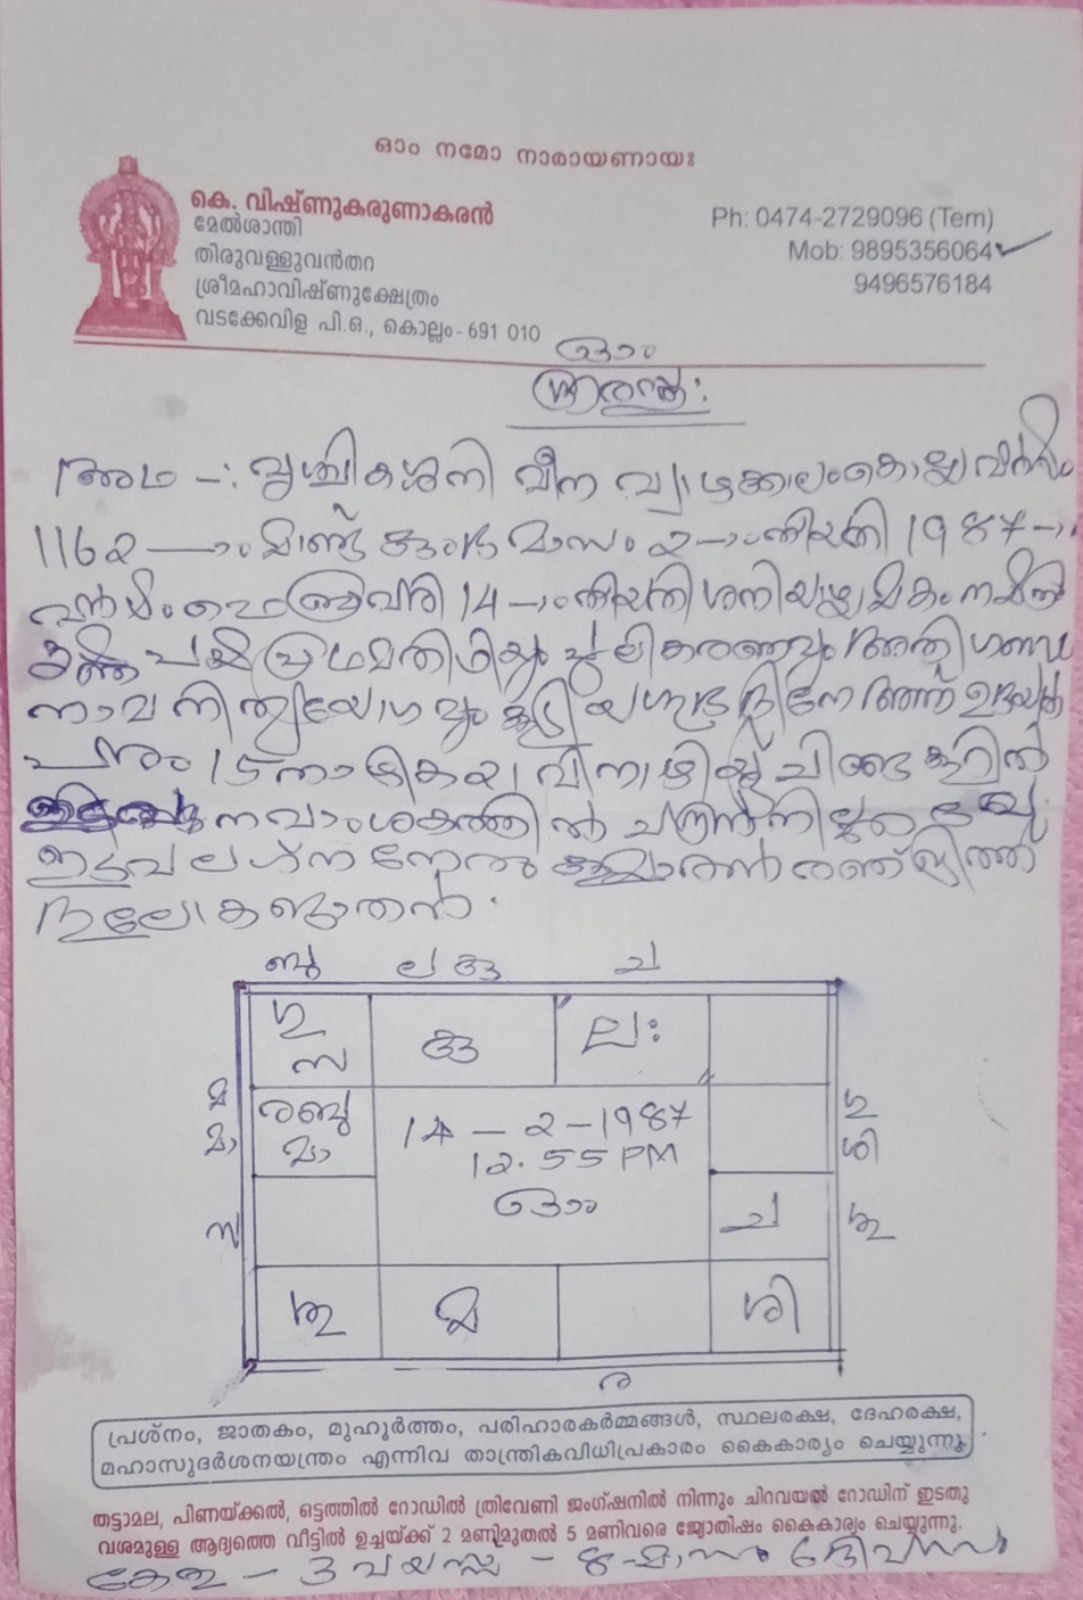 ഓം നമോ നാരായണായഃ
കെ. വിഷ്ണുകരുണാകരൻ
മേൽശാന്തി
തിരുവള്ളുവൻതറ
ശ്രീമഹാവിഷ്ണുക്ഷേത്രം
വടക്കേവിള പി.ഒ., കൊല്ലം - 691 010
Ph: 0474-2729096 (Tem)
Mob: 9895356064
9496576184
ഓം
അഥ -: വൃശ്ചികശനി മീന വ്യാഴക്കാലം കൊല്ല വർഷം
1162 -ാം മാണ്ട് കുംഭ മാസം 2-ാം തിയതി 1987-ാം
വർഷം ഫെബ്രുവരി 14-ാം തിയതി ശനിയാഴ്ച മകം
പക്ഷ പ്രഥമതിഥിയും പുലികരണവും അതിഗണ്ഡ
നാമ നിത്യയോഗവും കൂടിയ ശുഭദിനേ അന്ന് ഉദയാൽ
പരം 15 നാഴിക വിനാഴികയ്ക്ക് ചിങ്ങക്കൂറിൽ
നവാംശകത്തിൽ ചന്ദ്രൻ നില്ക്കവേ
ഇടവ ലഗ്നനേ
ബു ല കു ച
ഗു സ കു ല:
മ മാ ര ബു മാ ഗു ശി
14 - 2 - 1987
12.55 PM
ഓം
സ ച ശു
ശു മ ശി
ര
പ്രശ്നം, ജാതകം, മുഹൂർത്തം, പരിഹാരകർമ്മങ്ങൾ, സ്ഥലരക്ഷ, ദേഹരക്ഷ,
മഹാസുദർശനയന്ത്രം എന്നിവ താന്ത്രികവിധിപ്രകാരം കൈകാര്യം ചെയ്യുന്നു.
തട്ടാമല, പിണയ്ക്കൽ, ഒട്ടത്തിൽ റോഡിൽ ത്രിവേണി ജംഗ്ഷനിൽ നിന്നും ചിറവയൽ റോഡിന് ഇടതു
വശമുള്ള ആദ്യത്തെ വീട്ടിൽ ഉച്ചയ്ക്ക് 2 മണിമുതൽ 5 മണിവരെ ജ്യോതിഷം കൈകാര്യം ചെയ്യുന്നു.
കേതു - 3 വയസ്സ് - 8 മാസം 6 ദിവസം